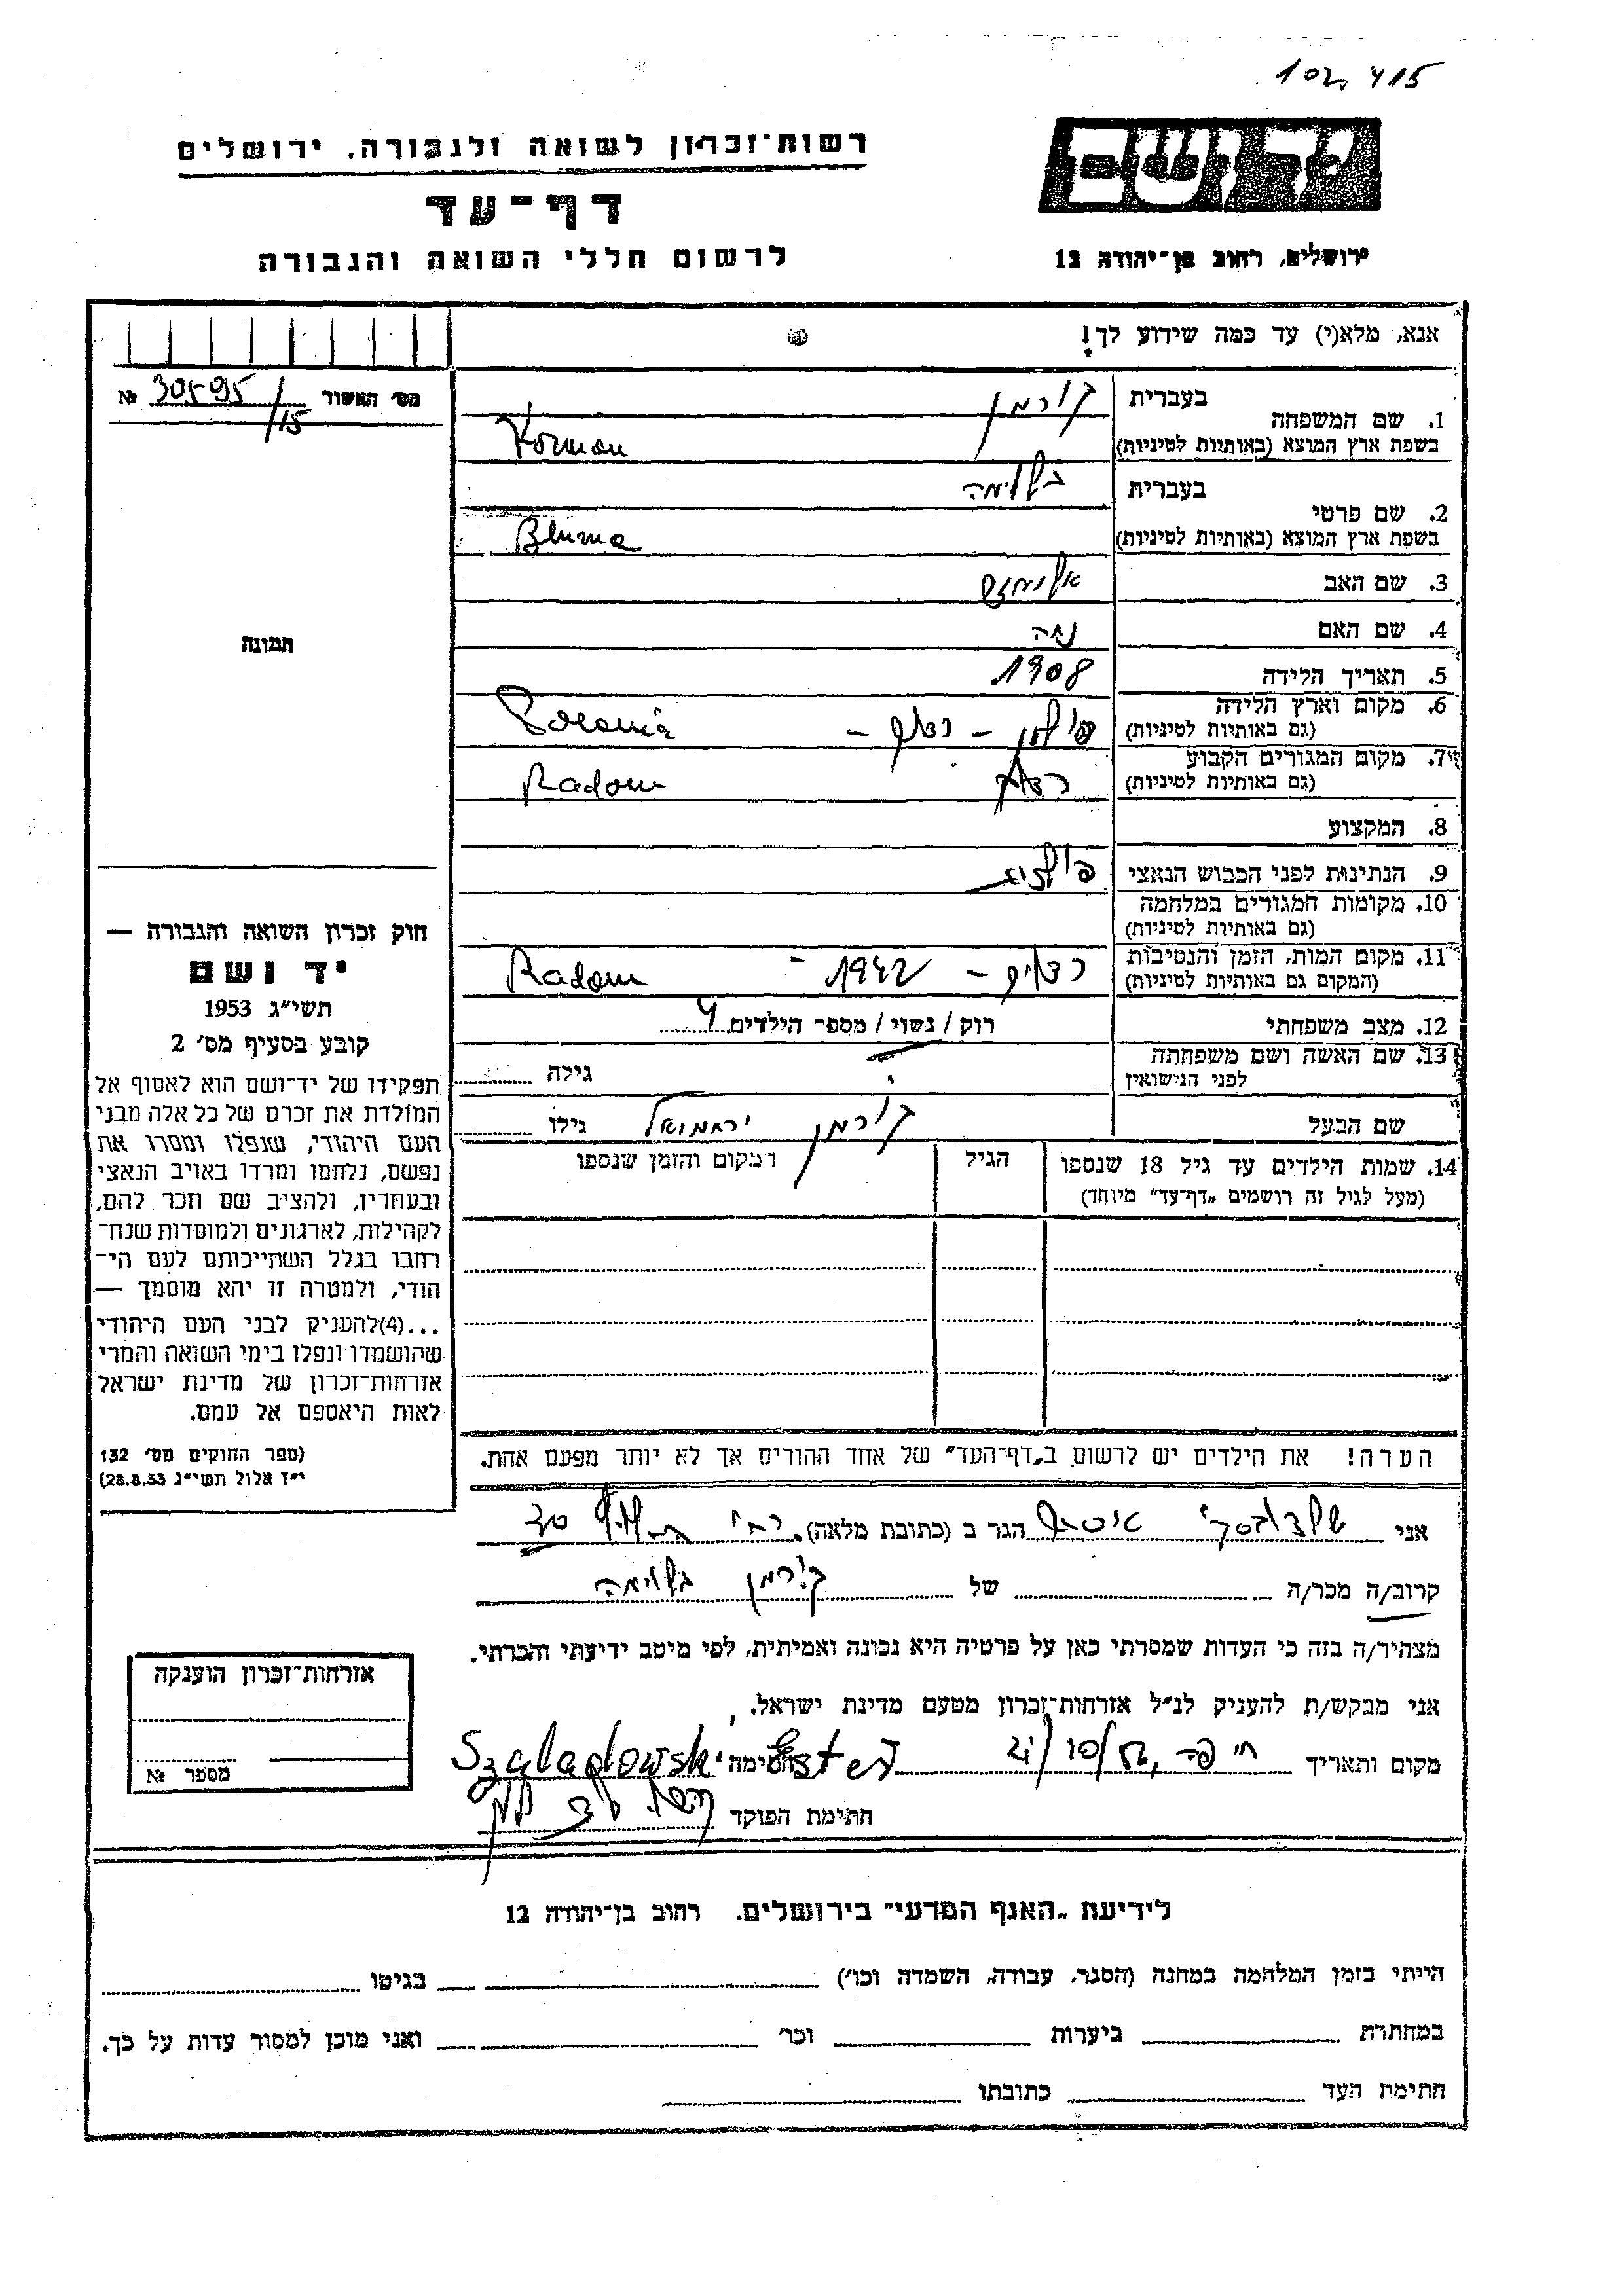 102,415
רשות־זכרון לשואה ולגבורה, ירושלים
יד ושם
דף־עד
לרשום חללי השואה והגבורה
ירושלים, רחוב בן־יהודה 12
אנא, מלא(י) עד כמה שידוע לך!
מס׳ האשור 30595/15 №
1. שם המשפחה
בעברית קורמן
בשפת ארץ המוצא (באותיות לטיניות) Korman
2. שם פרטי
בעברית בלומה
בשפת ארץ המוצא (באותיות לטיניות) Bluma
3. שם האב
4. שם האם
5. תאריך הלידה 1908
6. מקום וארץ הלידה
(גם באותיות לטיניות) פולין – רדום – Polonia
7. מקום המגורים הקבוע
(גם באותיות לטיניות) רדום Radom
8. המקצוע
9. הנתינות לפני הכבוש הנאצי פולנית
10. מקומות המגורים במלחמה
(גם באותיות לטיניות)
11. מקום המות, הזמן והנסיבות
(המקום גם באותיות לטיניות) רדום – 1942 – Radom
12. מצב משפחתי רוק / נשוי / מספר הילדים 4
13. שם האשה ושם משפחתה
לפני הנישואין גילה
שם הבעל קורמן ירחמיאל גילו
14. שמות הילדים עד גיל 18 שנספו הגיל ומקום והזמן שנספו
(מעל לגיל זה רושמים „דף־עד״ מיוחד)
הערה! את הילדים יש לרשום ב„דף־העד״ של אחד ההורים אך לא יותר מפעם אחת.
תמונה
חוק זכרון השואה והגבורה —
יד ושם
תשי״ג 1953
קובע בסעיף מס׳ 2
תפקידו של יד־ושם הוא לאסוף אל
המולדת את זכרם של כל אלה מבני
העם היהודי, שנפלו ומסרו את
נפשם, נלחמו ומרדו באויב הנאצי
ובעוזריו, ולהציב שם וזכר להם,
לקהילות, לארגונים ולמוסדות שנח־
רחבו בגלל השתייכותם לעם הי־
הודי, ולמטרה זו יהא מוסמך —
...(4) להעניק לבני העם היהודי
שהושמדו ונפלו בימי השואה והמרי
אזרחות־זכרון של מדינת ישראל
לאות היאספם אל עמם.
(ספר החוקים מס׳ 132
י״ז אלול תשי״ג 28.8.53)
אני שלדובסקי אסתר הגר ב (כתובת מלאה) רח׳
קרוב/ה מכר/ה של קורמן בלומה
מצהיר/ה בזה כי העדות שמסרתי כאן על פרטיה היא נכונה ואמיתית, לפי מיטב ידיעתי והכרתי.
אני מבקש/ת להעניק לנ״ל אזרחות־זכרון מטעם מדינת ישראל.
מקום ותאריך חיפה, חתימה Szaladowski Ester
חתימת הפוקד
אזרחות־זכרון הוענקה
מספר №
לידיעת „האגף המדעי״ בירושלים. רחוב בן־יהודה 12
הייתי בזמן המלחמה במחנה (הסגר, עבודה, השמדה וכו׳) בגיטו
במחתרת ביערות וכו׳ ואני מוכן למסור עדות על כך.
חתימת העד כתובתו